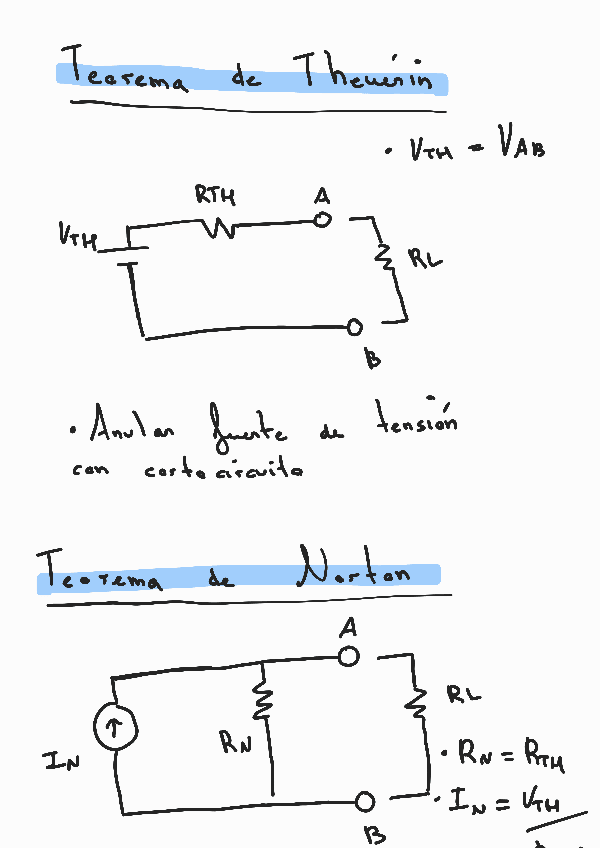 Teorema de Thevénin
• VTH = VAB
RTH
A
VTH
RL
B
• Anular fuente de tensión
con cortocircuito
Teorema de Norton
A
RL
RN
IN
• RN = RTH
• IN = VTH
B